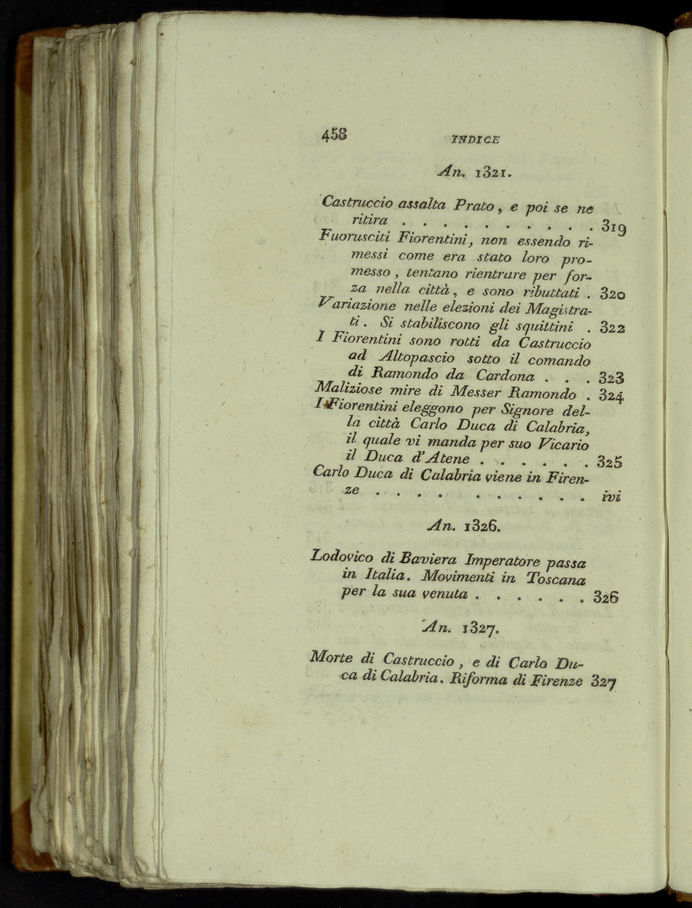 458 INDICE
An. 1321.
Castruccio assalta Prato, e poi se ne
ritira . . . . . . . . . . 319
Fuorusciti Fiorentini, non essendo ri-
messi come era stato loro pro-
messo, tentano rientrare per for-
za nella città, e sono ributtati . 320
Variazione nelle elezioni dei Magistra-
ti. Si stabiliscono gli squittini . 322
I Fiorentini sono rotti da Castruccio
ad Altopascio sotto il comando
di Ramondo da Cardona . . . 323
Maliziose mire di Messer Ramondo . 324
I Fiorentini eleggono per Signore del-
la città Carlo Duca di Calabria,
il quale vi manda per suo Vicario
il Duca d'Atene . . . . . . 325
Carlo Duca di Calabria viene in Firen-
ze . . . . . . . . . . ivi
An. 1326.
Lodovico di Baviera Imperatore passa
in Italia. Movimenti in Toscana
per la sua venuta . . . . . . 326
An. 1327.
Morte di Castruccio, e di Carlo Du-
ca di Calabria. Riforma di Firenze 327